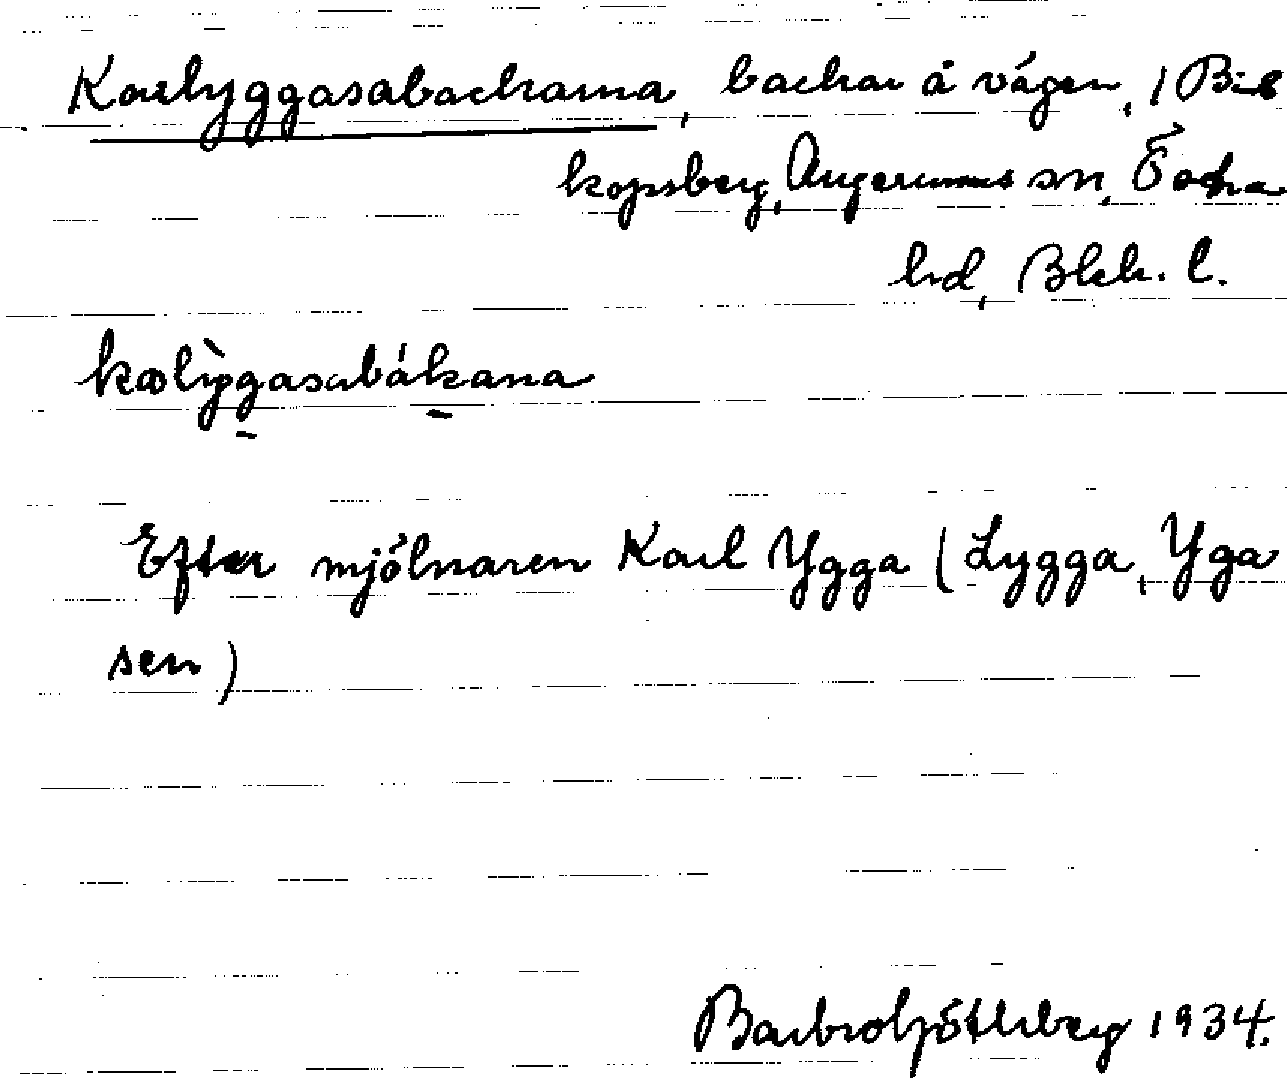 Karlyggasabackarna, backar å vägen, i Bis
kopsberg, Augerums sn, Östra
hd, Blek. l.
kalỳggasabákana
Efter mjölnaren Karl Ygga (Lygga, Yga
sen)
1934.